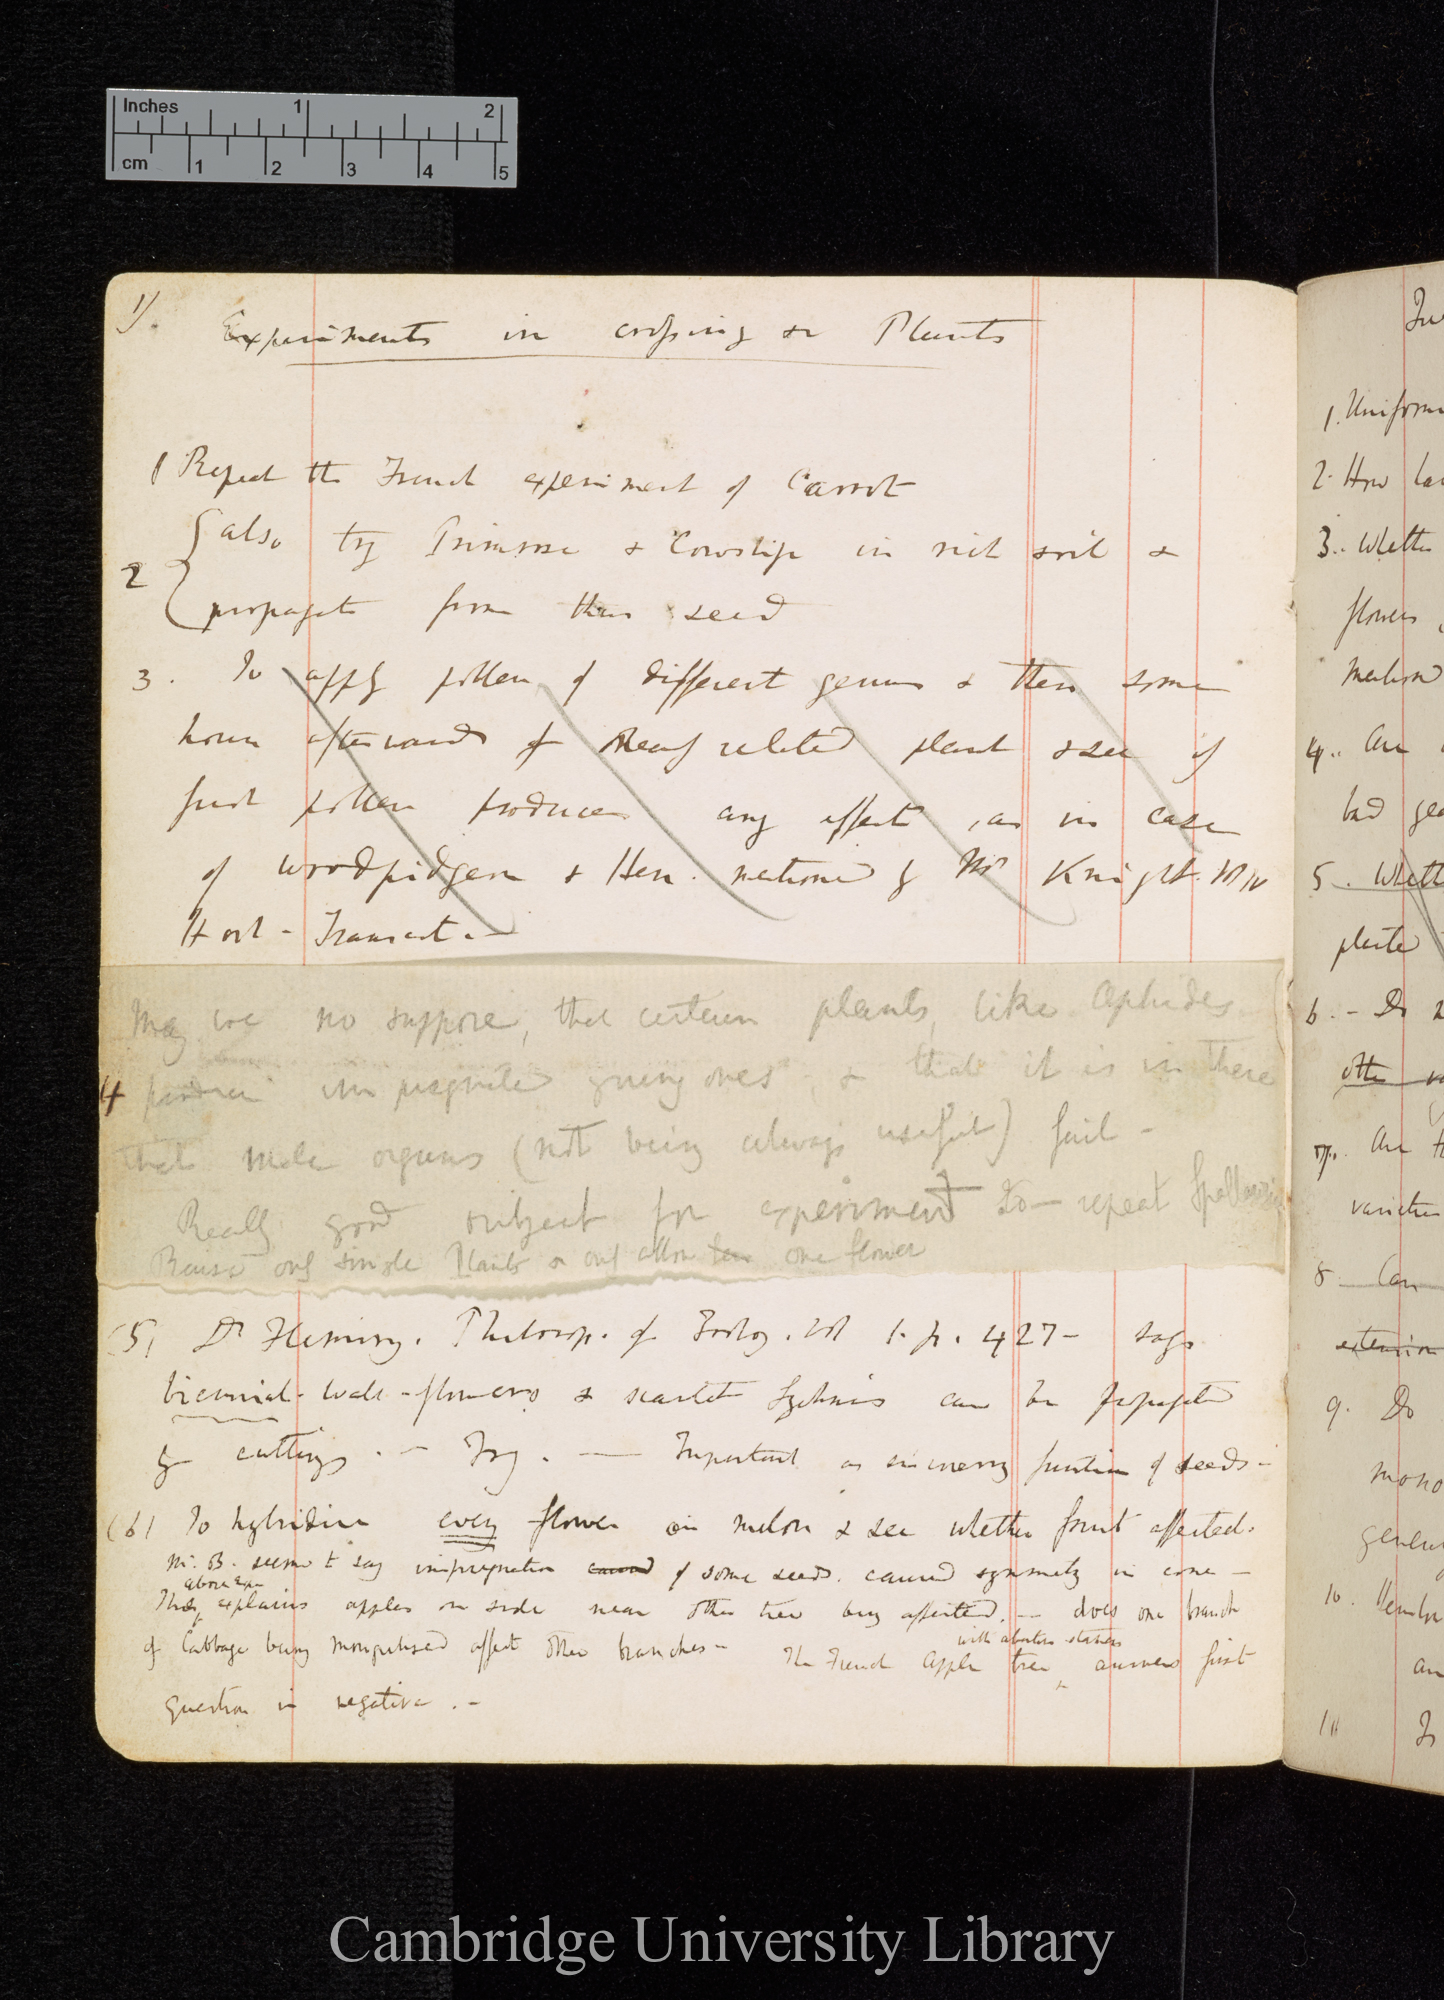 Inches 1 2
cm 1 2 3 4 5
1).
Experiments in crossing &c Plants
1 Repeat the French experiment of Carrot
2 { also try Primrose & Cowslip in rich soil &
propagate from their seed
3. To apply pollen of different genus & then some
hours afterwards of nearly related plant & see if
first pollen produces any effect, as in case
of Woodpidgeon & Hen. mentioned by Mr Knight. Vol IV
Hort- Transact.—
May we no suppose, that certain plants, like Aphides
4 produce impregnated young ones & that it is in these
that male organs (not being always useful) fail —
Really good subject for experiment to — repeat Spallanzani
Raise only single Plants or only allow one flower
(5) Dr Fleming. Philosop. of Zoolog. Vol 1. p. 427 — says
biennial- wall-flowers & scarlet Lychnis can be propagated
by cuttings. — Try. — Important as in inverse function of seeds —
(6) To hybridise every flower on melon & see whether fruit affected.
Mr. B. seems to say impregnation caused of some seeds. caused symmetry in cone —
above exp
This explains apples on side near other tree being affected. — does one branch
of Cabbage being mongrelised affect other branches — The French Apple tree answers first
with abortive stamens
question in negative. —
1. Uniform
2. How
3.. Whether
flowers
4..
bad
5. Whether
6. — Do
other
7.
varieties
8. Can
extension
9. Do
mono
10.
11
Cambridge University Library